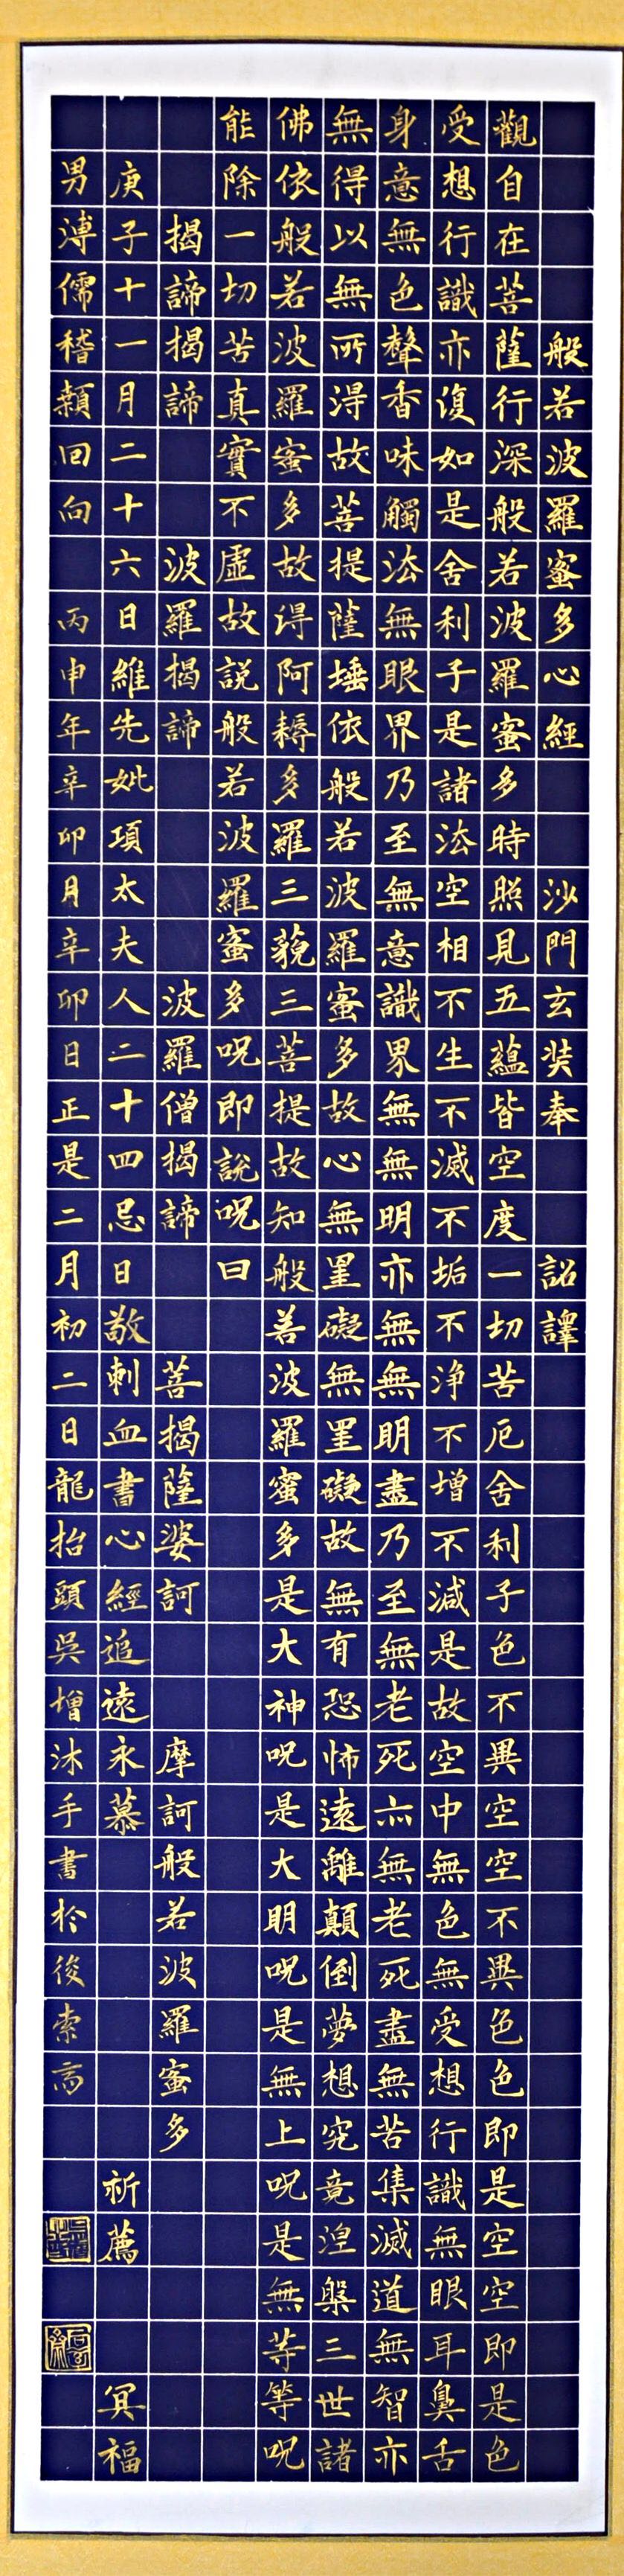 般若波羅蜜多心經 沙門玄奘奉 詔譯
觀自在菩薩行深般若波羅蜜多時照見五蘊皆空度一切苦厄舍利子色不異空空不異色色即是空空即是色
受想行識亦復如是舍利子是諸法空相不生不滅不垢不净不增不減是故空中無色無受想行識無眼耳鼻舌
身意無色聲香味觸法無眼界乃至無意識界無無明亦無無明盡乃至無老死亦無老死盡無苦集滅道無智亦
無得以無所得故菩提薩埵依般若波羅蜜多故心無罣礙無罣礙故無有恐怖遠離顛倒夢想究竟涅槃三世諸
佛依般若波羅蜜多故得阿耨多羅三藐三菩提故知般若波羅蜜多是大神呪是大明呪是無上呪是無等等呪
能除一切苦真實不虛故說般若波羅蜜多呪即說呪曰
揭諦揭諦 波羅揭諦 波羅僧揭諦 菩揭薩婆訶 摩訶般若波羅蜜多
庚子十一月二十六日維先妣項太夫人二十四忌日敬刺血書心經追遠永慕 祈薦 冥福
男溥儒稽顙回向 丙申年辛卯月辛卯日正是二月初二日龍抬頭吳增沐手書於後索